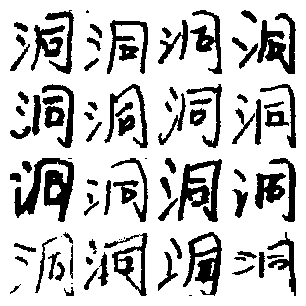 洞洞洞洞
洞洞洞洞
洞洞洞洞
洞洞洞洞